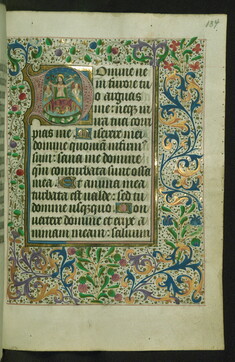 Domine ne
in furore tu
o arguas
me : neq3 in
ira tua corri
pias me Miserere mei
domine quoniam infirm9
sum : sana me domine
qm conturbata sunt ossa
mea Et anima mea
turbata est valde : sed tu
domine usquequo Con
uertere domine et eripe a
nimam meam : saluum